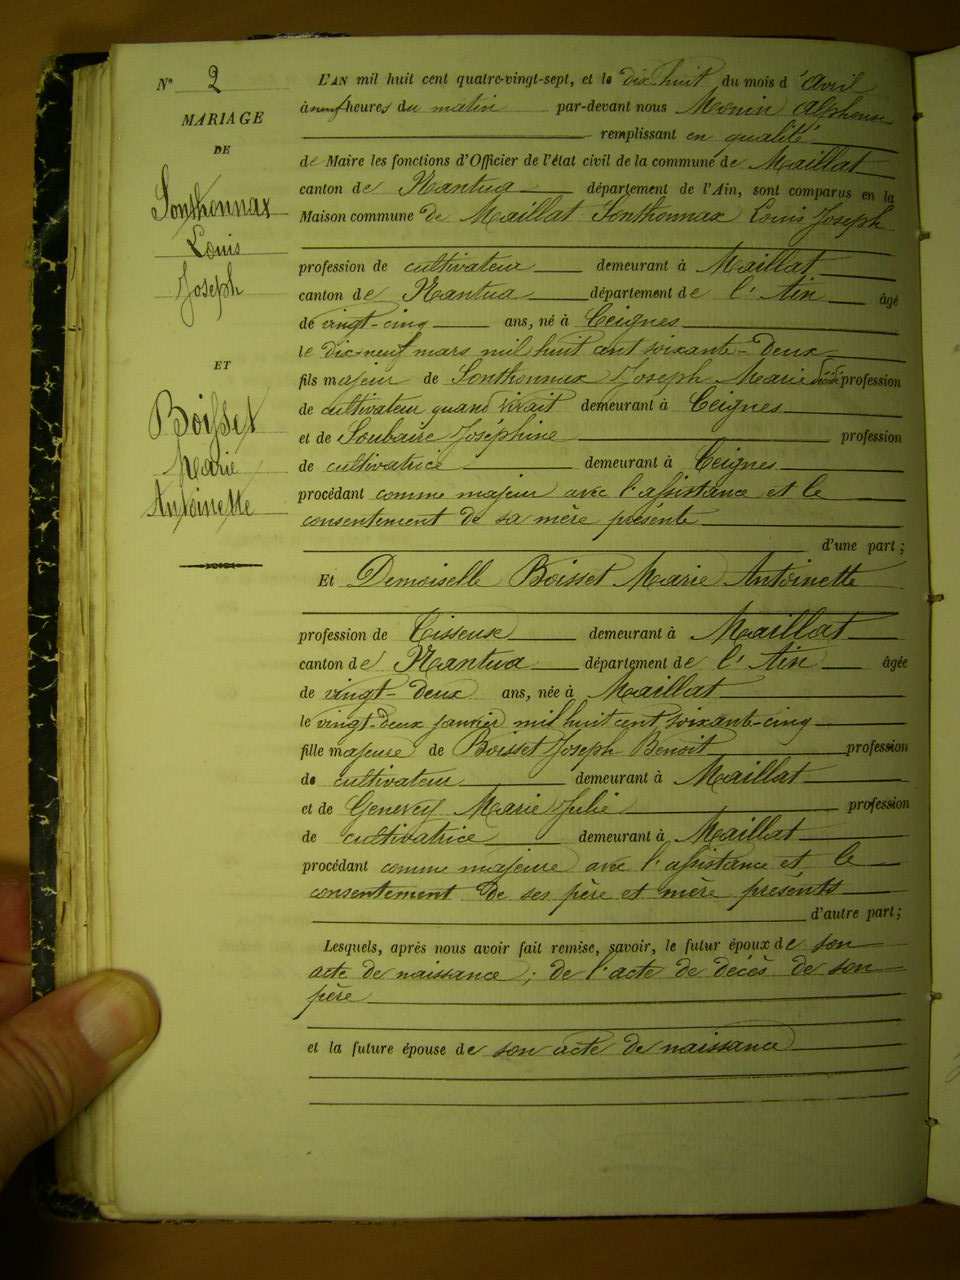 N° 2
MARIAGE
DE
Sonthonnax
Louis
Joseph
ET
Boisset
Marie
Antoinette
L'AN mil huit cent quatre-vingt-sept, et le dix huit du mois d'Avril
à neuf heures du matin par-devant nous Monin Alphonse
remplissant en qualité
de Maire les fonctions d'Officier de l'état civil de la commune de Maillat
canton de Nantua département de l'Ain, sont comparus en la
Maison commune de Maillat Sonthonnax Louis Joseph
profession de cultivateur demeurant à Maillat
canton de Nantua département de l'Ain âgé
de vingt-cinq ans, né à Ceignes
le dix-neuf mars mil huit cent soixante-deux
fils majeur de Sonthonnax Joseph Marie décédé profession
de cultivateur quand vivait demeurant à Ceignes
et de Soubaire Joséphine profession
de cultivatrice demeurant à Ceignes
procédant comme majeur avec l'assistance et le
consentement de sa mère présente
d'une part;
Et Demoiselle Boisset Marie Antoinette
profession de Tisseuse demeurant à Maillat
canton de Nantua département de l'Ain âgée
de vingt-deux ans, née à Maillat
le vingt-deux janvier mil huit cent soixante-cinq
fille majeure de Boisset Joseph Benoit profession
de cultivateur demeurant à Maillat
et de Genevey Marie Julie profession
de cultivatrice demeurant à Maillat
procédant comme majeure avec l'assistance et le
consentement de ses père et mère présents
d'autre part;
Lesquels, après nous avoir fait remise, savoir, le futur époux de son
acte de naissance; de l'acte de décès de son
père
et la future épouse de son acte de naissance